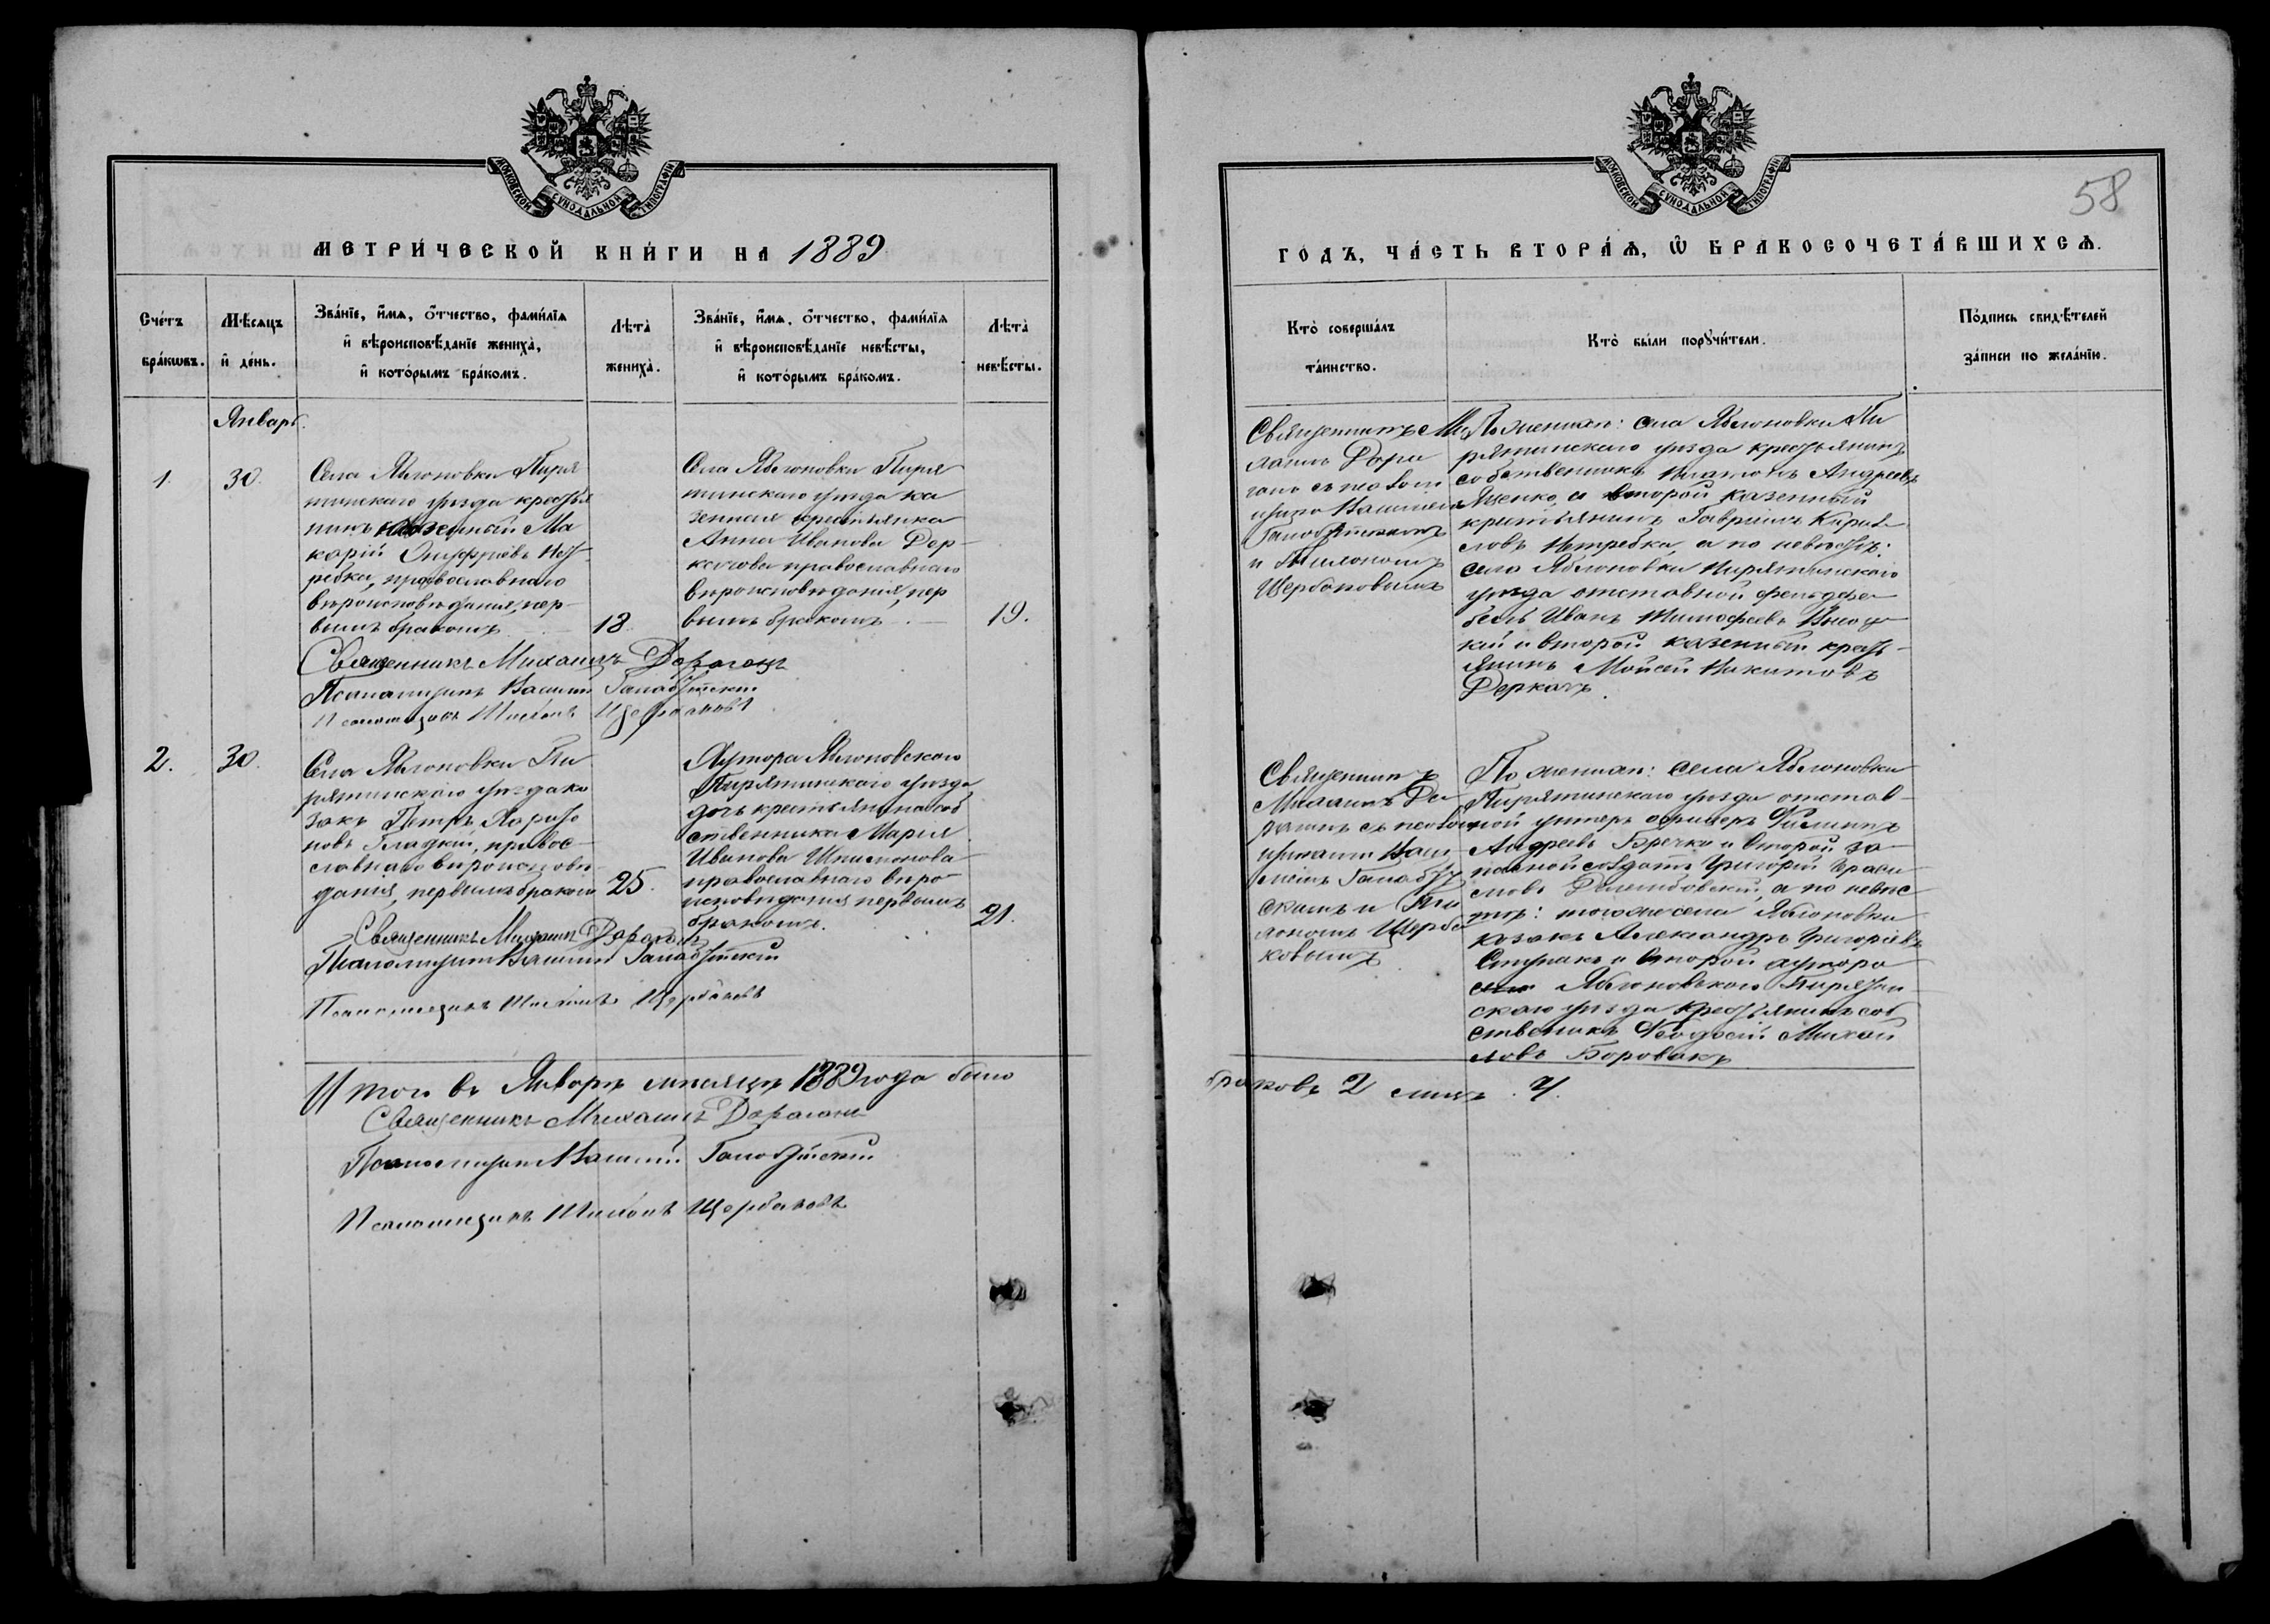 МОСКОВСКОЙ СУНОДАЛЬНОЙ ТИПОГРАФІИ
МЕТРИ́ЧЕСКОЙ КНИ́ГИ НА 1889
Сче́тъ бра́кѡвъ.
Мѣ́сяцъ и҆ де́нь.
Зва́нїе, и҆́мѧ, ѻ҆́тчество, фами́лїѧ
и҆ вѣроисповѣ́данїе жениха̀,
и҆ кото́рымъ бра́комъ.
Лѣ́та жениха̀.
Зва́нїе, и҆́мѧ, ѻ҆́тчество, фами́лїѧ
и҆ вѣроисповѣ́данїе невѣ́сты,
и҆ кото́рымъ бра́комъ.
Лѣ́та невѣ́сты.
Январь.
1.
30.
Села Яблоновки Пиря
тинскаго уѣзда крестья
нинъ казенный Ма
карій Онуфріевъ Нет
ребка, православнаго
вѣроисповѣданія, пер-
вымъ бракомъ
18.
Села Яблоновки Пиря
тинскаго уѣзда ка
зенная крестьянка
Анна Иванова Дер-
качова православнаго
вѣроисповѣданія, пер
вымъ бракомъ.
19.
Священникъ Михаилъ Дараганъ
Псаломщикъ Василій
Псаломщикъ Щербаковъ
2.
30.
Села Яблоновки Пи
рятинскаго уѣзда ка
закъ Петръ Харито
новъ Гладкій, правос-
славнаго вѣроисповѣ
данія, первымъ бракомъ
25.
Хутора Яблоновскаго
Пирятинскаго уѣзда
дочь крестьянина соб
ственника Марія
Иванова Шпилонова
православнаго вѣро
исповѣданія первымъ
бракомъ.
21.
Священникъ Михаилъ Дараганъ
Псаломщикъ Василій
Псаломщикъ Щербаковъ
Итого въ Январѣ мѣсяцѣ 1889 года было
Священникъ Михаилъ Дараганъ
Псаломщикъ Василій
Псаломщикъ Щербаковъ
МОСКОВСКОЙ СУНОДАЛЬНОЙ ТИПОГРАФІИ
58
ГОДЪ, ЧА́СТЬ ВТОРА́Ѧ, Ѽ БРАКОСОЧЕТА́ВШИХСѦ.
Кто̀ соверша́лъ та́инство.
Кто̀ бы́ли порꙋчи́тели.
По́дпись свидѣ́телей
за́писи по жела́нїю.
Священникъ Ми
хаилъ Дара
ганъ съ псалом
щико Василіем
и
Щербаковымъ
По женихѣ: села Яблоновки Пи
рятинскаго уѣзда крестьянинъ
собственникъ Андреевъ
Яценко и второй казенный
крестьянинъ Гавріилъ Кирил
ловъ Нетребка, а по невѣстѣ:
села Яблоновки Пирятинскаго
уѣзда отставной фельдфе
бель Иванъ Тимофеевъ Высоц-
кій и второй казенный крест-
янинъ Мойсей Никитовъ
Деркачъ.
Священникъ
Михаилъ Да
раганъ съ псалом
щиками Васи
ліемъ
скимъ и
Щерба
ковымъ
По женихѣ: села Яблоновки
Пирятинскаго уѣзда отстав-
ной унтеръ офицеръ Филиппъ
Андреевъ Гречка и второй за-
пасной солдатъ Григорій Гераси
мовъ а по невѣс
тѣ: тогоже села Яблоновки
козакъ Александръ Григоріевъ
Ступакъ и второй хутора
Яблоновскаго Пирятин
скаго уѣзда крестьянинъ соб
ственникъ Феодосій Михай
ловъ Боровикъ
браковъ 2 лицъ 4.